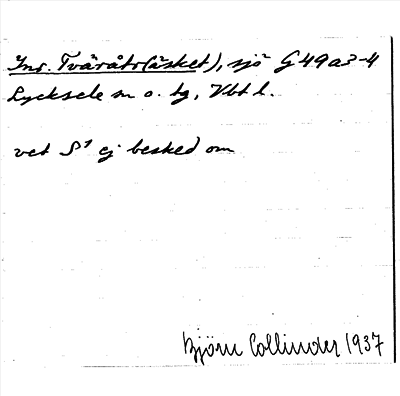 Inr. Tväråtr(äsket), sjö G 49 a 3-4
Lycksele sn o. tg, Vbtl.
vet S¹ ej besked om
Björn Collinder 1937